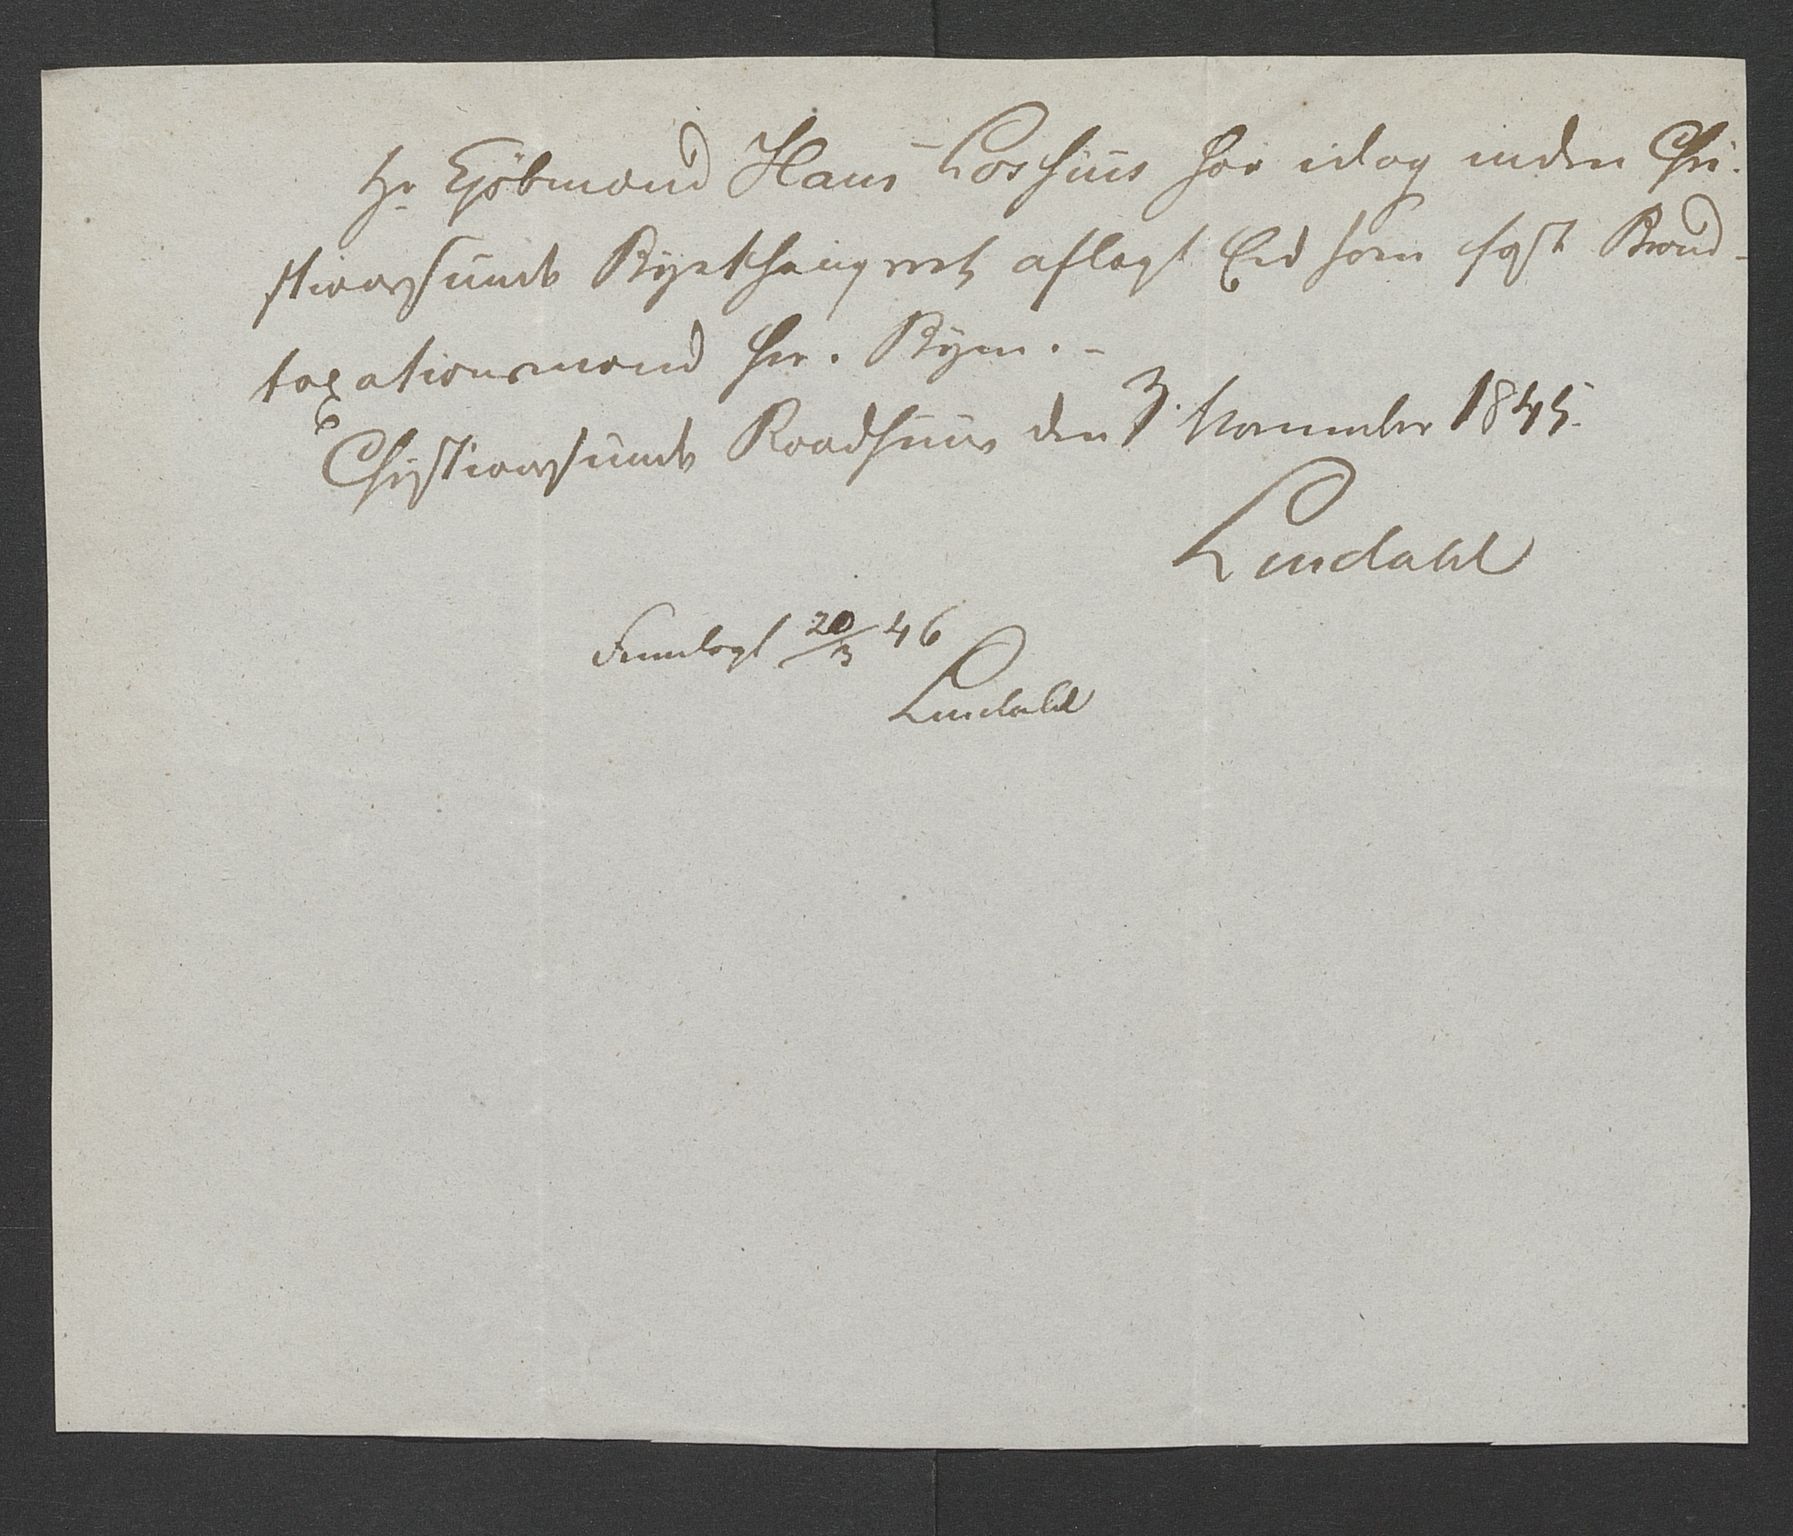 Hr Kjøbmand Hans Lossius har idag inden Chri-
stianssunds Bythingsret aflagt Eed som fast Brand-
taxationsmand her i Byen. -
Christianssunds Raadhuus den 3. November 1845.
Lindahl
Fremlagt 20/3 46
Lindahl